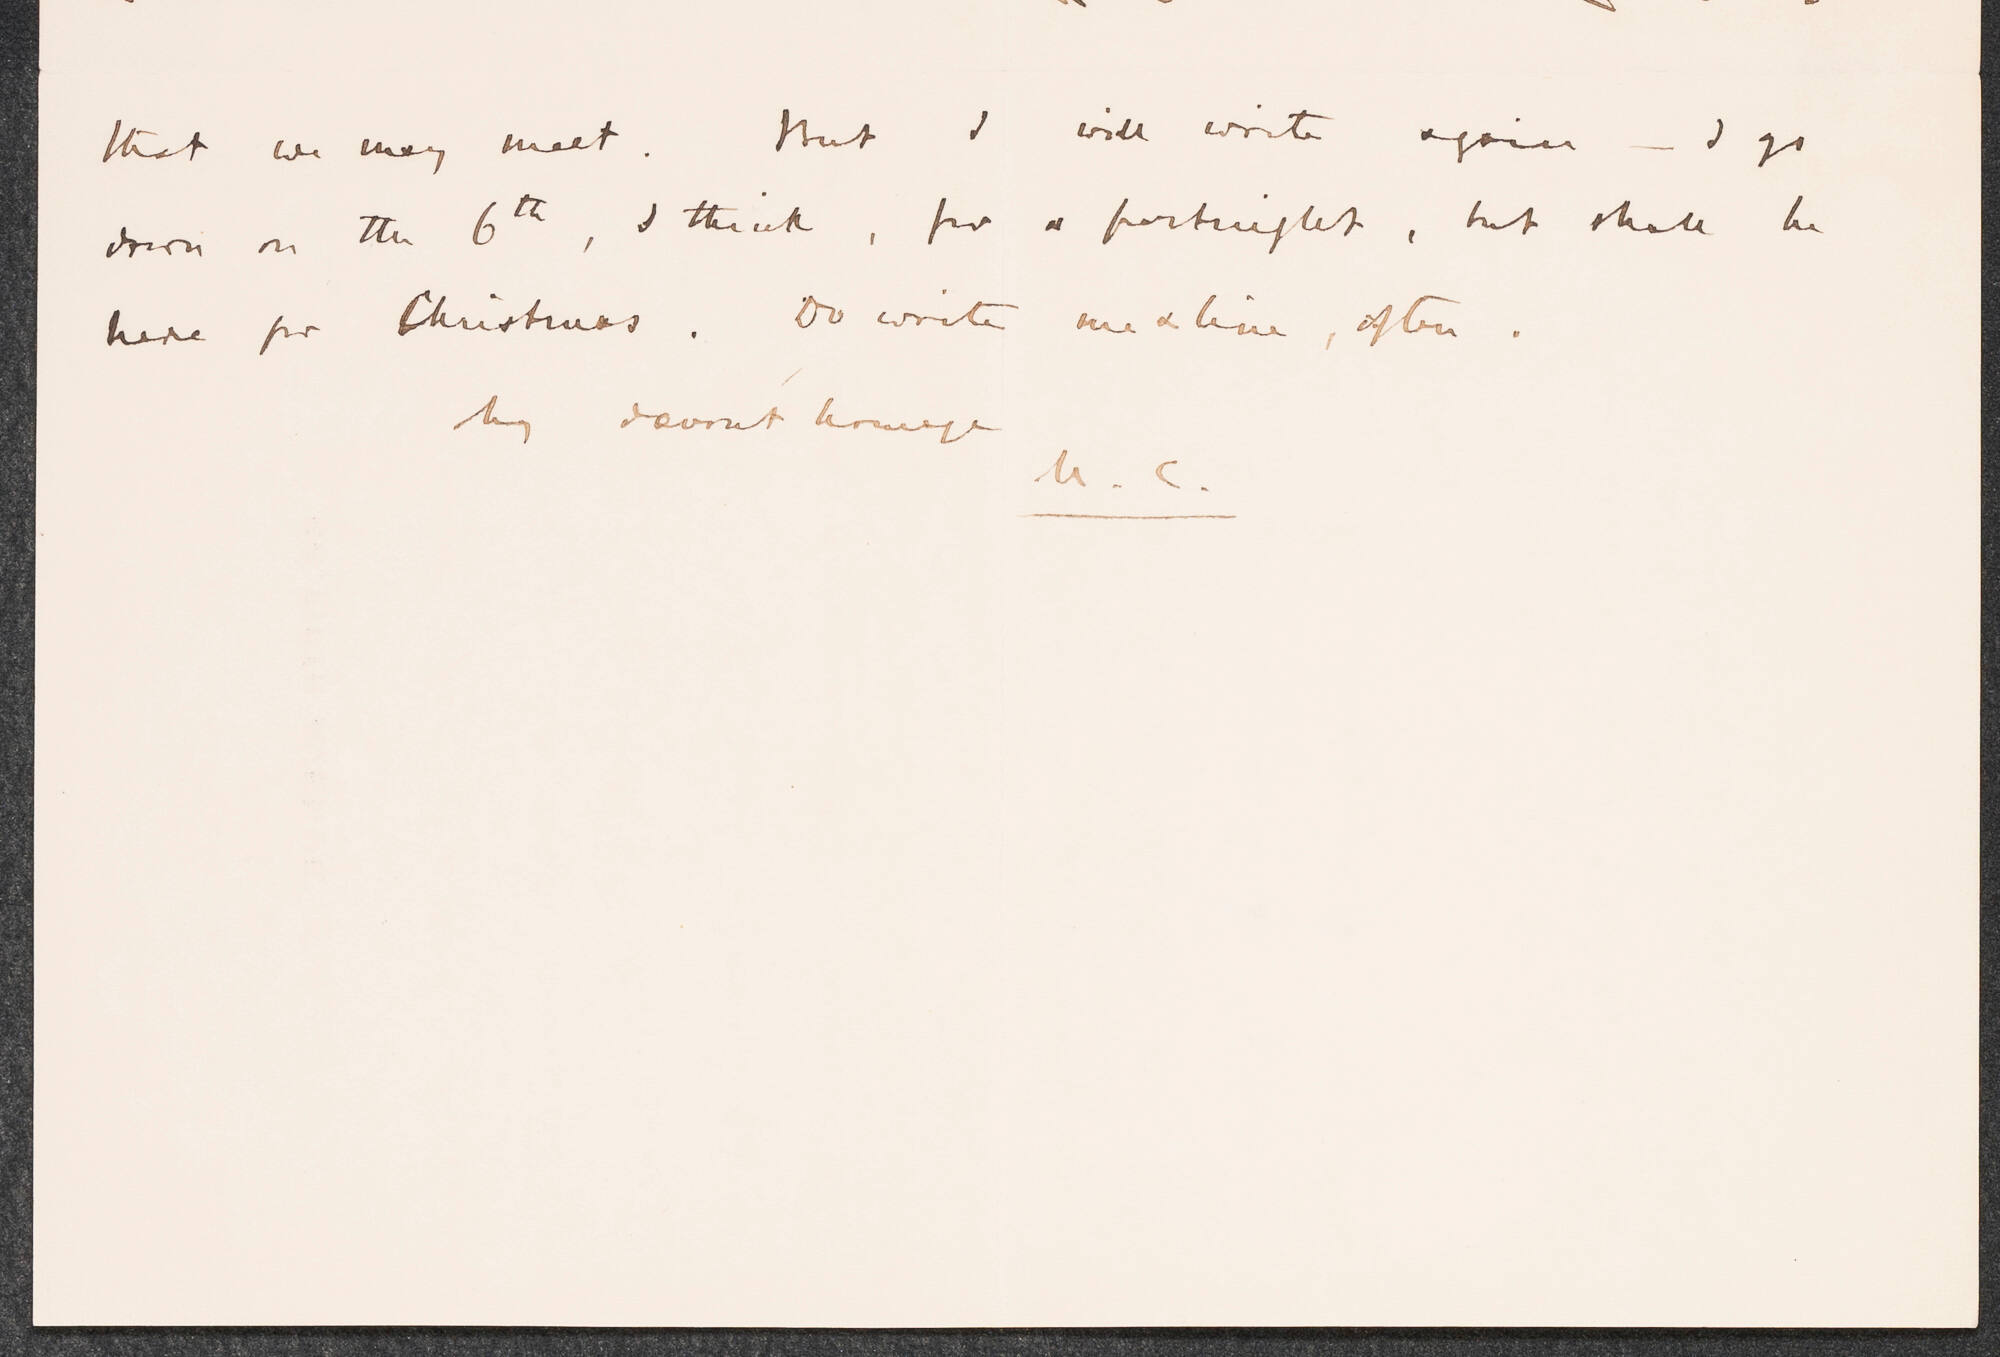 that we may meet. But I will write again — I go
down on the 6th, I think, for a fortnight, but shall be
here for Christmas. Do write me a line, often.
My devout homage
M. C.